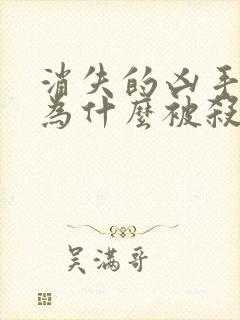 消失的凶手
為什麼被殺
吴满哥